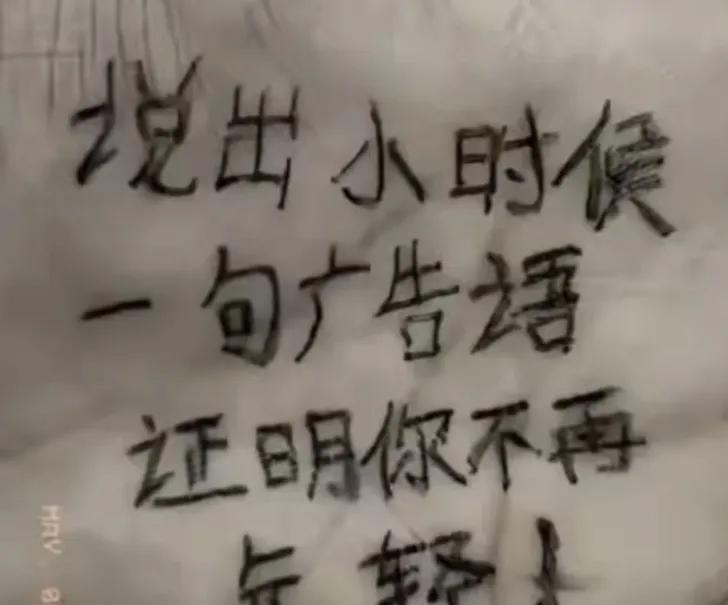 说出小时候
一句广告语
证明你不再
年轻
MAY. 0